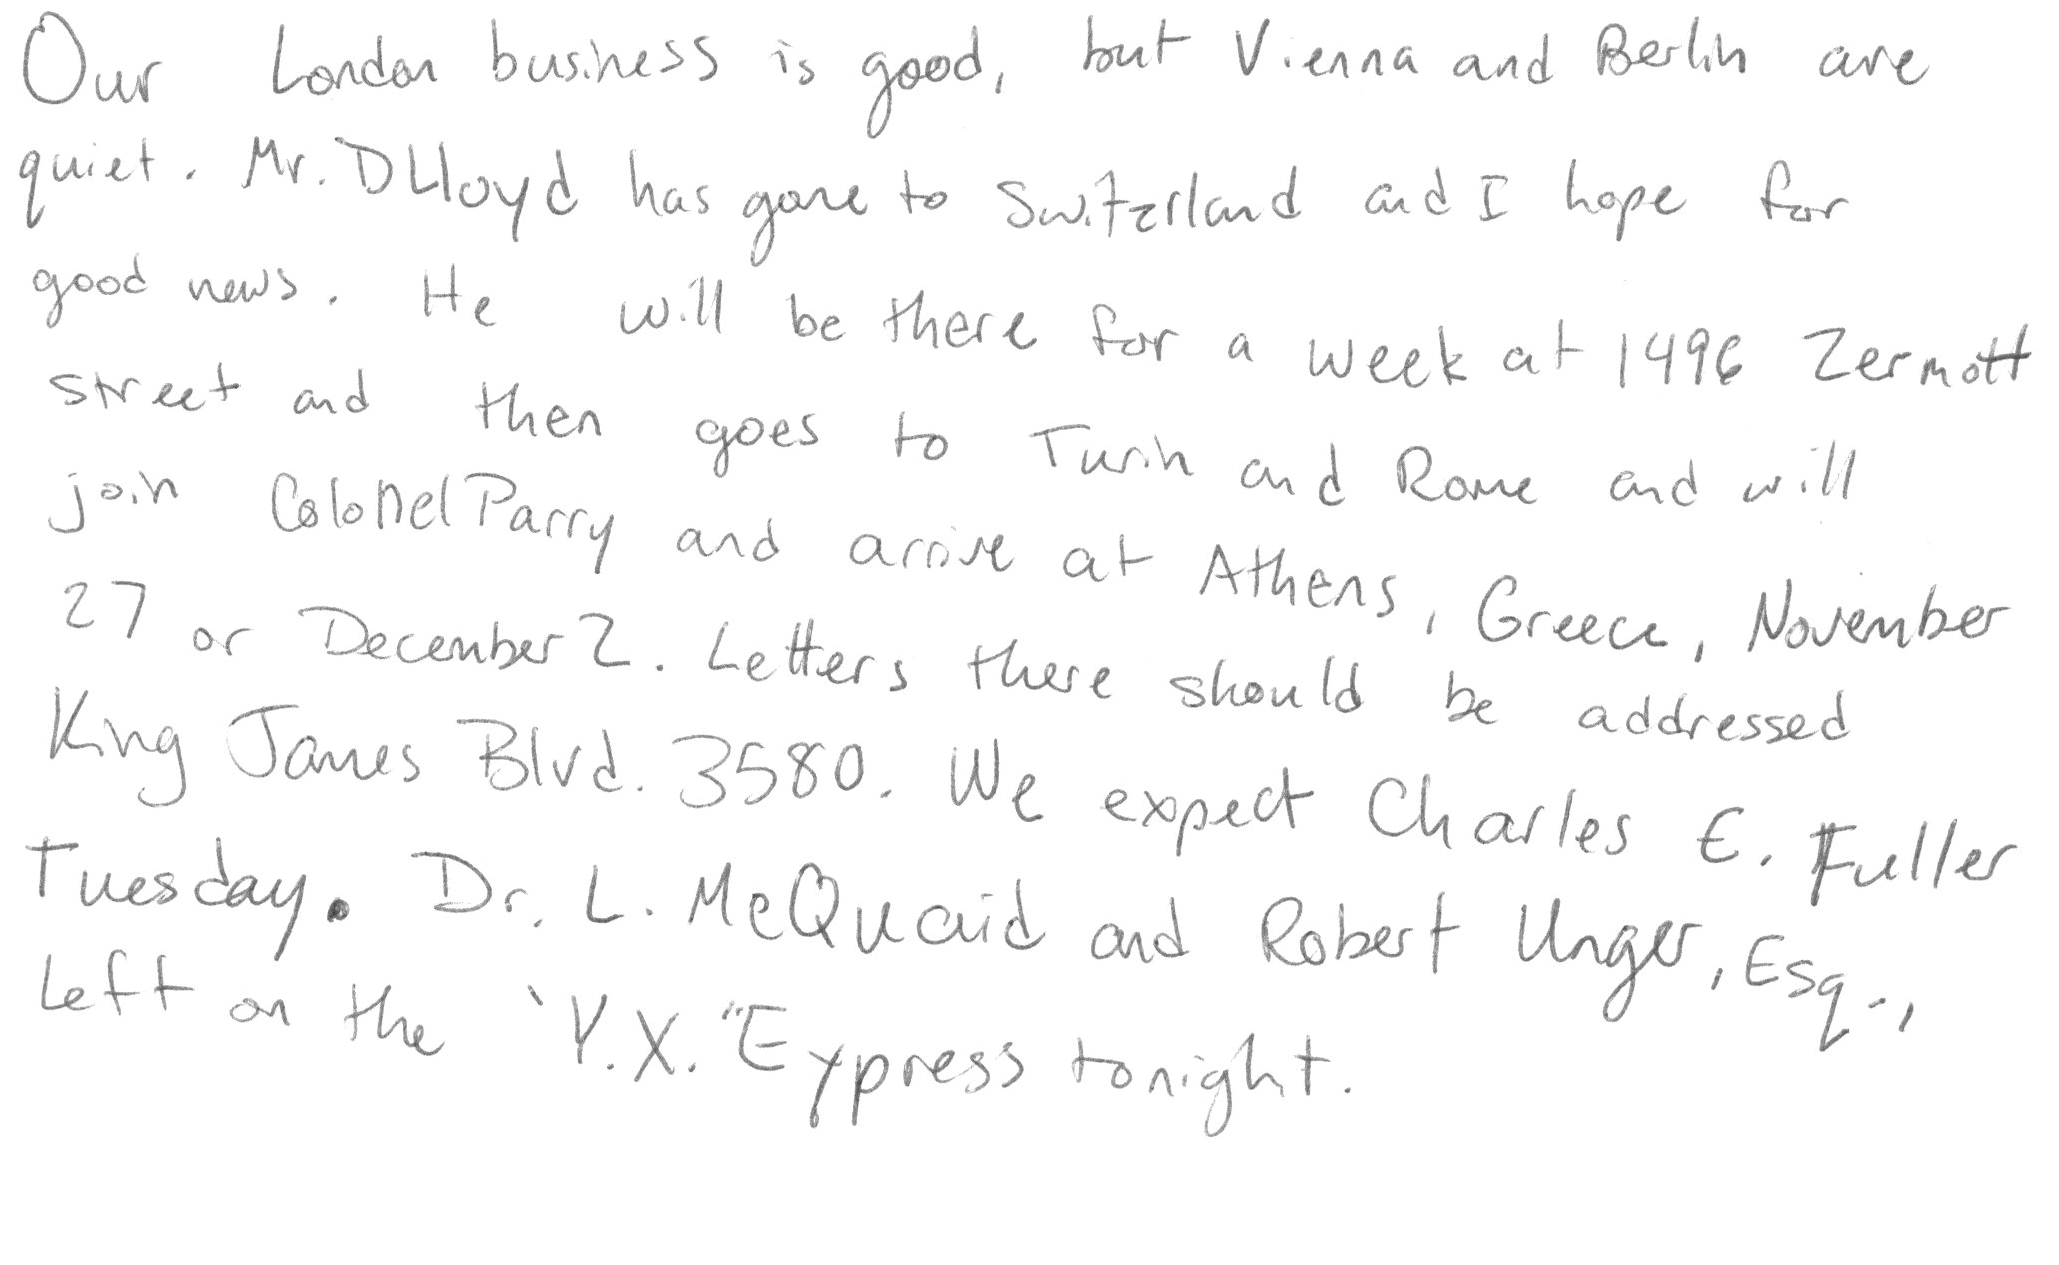 Our London business is good, but Vienna and Berlin are
quiet. Mr. D Lloyd has gone to Switzerland and I hope for
good news. He will be there for a week at 1496 Zermott
street and then goes to Turin and Rome and will
join Colonel Parry and arrive at Athens, Greece, November
27 or December 2. Letters there should be addressed
King James Blvd. 3580. We expect Charles E. Fuller
Tuesday. Dr. L. McQuaid and Robert Unger, Esq.,
left on the "Y.X." Express tonight.